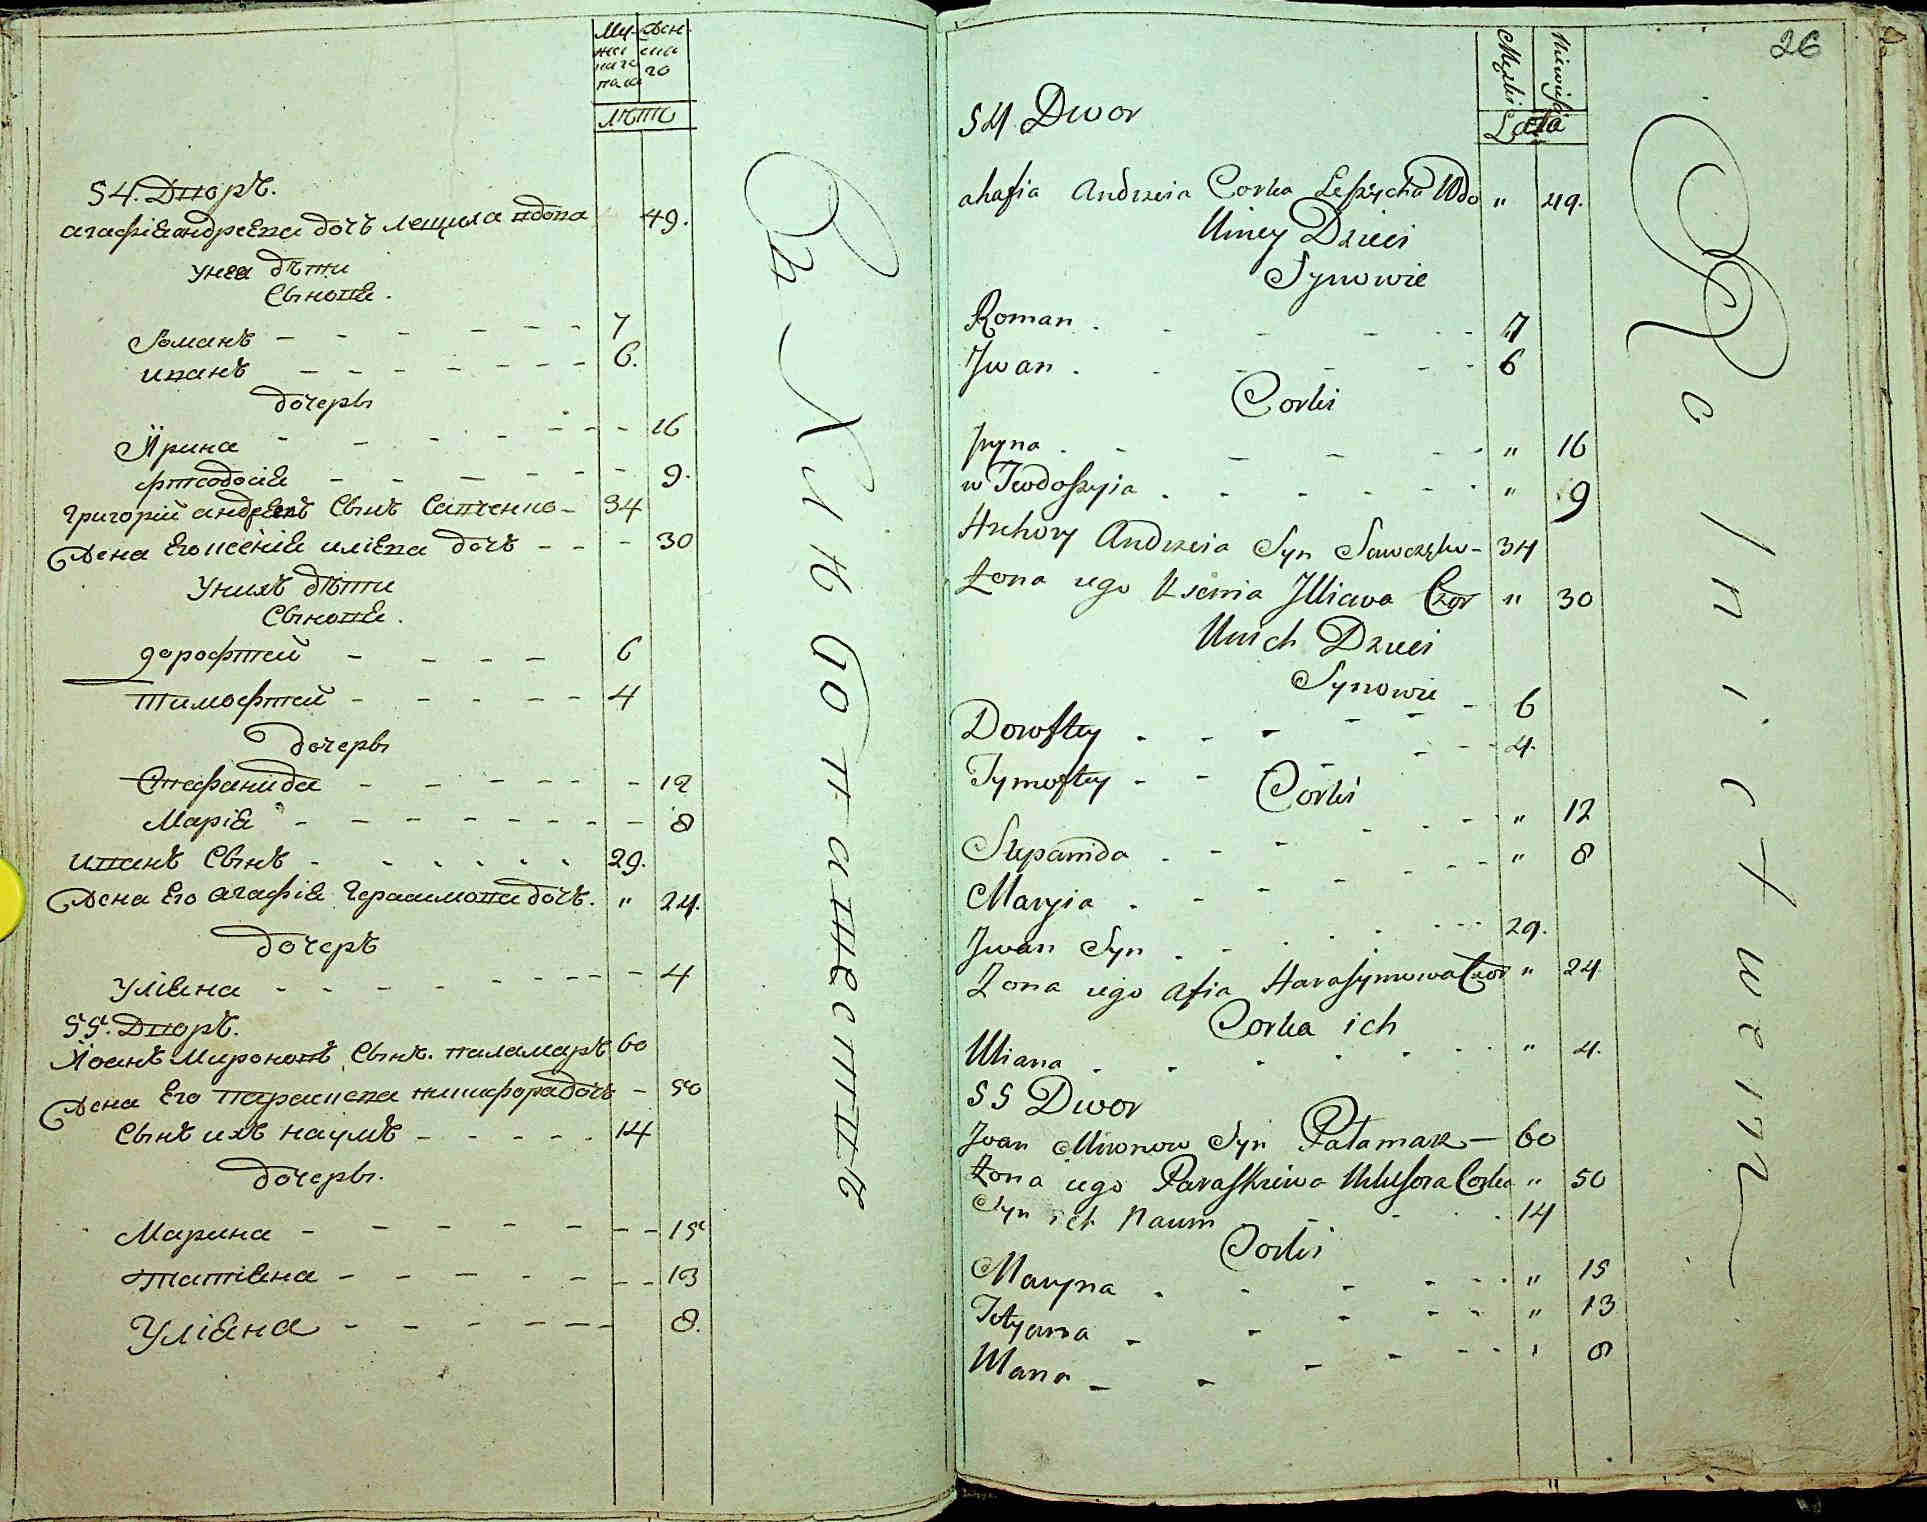 Му-
жес
каго
пола
Жен
ска
го
лѣтъ
54. Дворъ.
агафія андреева дочъ Лещиха вдова 49.
Унея дѣти
Сынове.
Романъ - - - - - - 7
иванъ - - - - - - - 6.
дочеры
Ирина - - - - - - 16
фтеодосія - - - - - - 9.
григорій андреевъ Сынъ Савченко - 34
Жена Его ксенія иліева дочъ - - - 30
Унихъ дѣти
Сынове.
дорофтей - - - - 6
тимофтей - - - - - 4
дочеры
Стефанида - - - - - - 12
Марія - - - - - - - - 8
иванъ Сынъ - - - - - - 29.
Жена Его агафія Герасимова дочъ. " 24.
дочеръ
уліяна - - - - - - - - 4
55. Дворъ.
Йоанъ Мироновъ Сынъ. паламаръ 60
Жена Его параскева никифора дочъ - 50
Сынъ ихъ наумъ - - - - - 14
дочеры.
Марина - - - - - - - - 15
татіяна - - - - - - - - 13
Уліяна - - - - - - - 8.
Съ Никопашнести
26
Męski
Niewieski
Lata
54 Dwor
ahafia Andrzeia Corka Leszczycha Wdo " 49.
Uniey Dzieci
Synowie
Roman . - - - - - 7
Jwan . - - - - - 6
Corki
Jryna . - - - - - " 16
w Teodoszyia . - - - - - . " 9
Hrehory Andrzeia Syn Sawczęko - 34
Żona iego Ksenia Jlliewa Czor " 30
Unich Dzieci
Synowie
Doroftey . - - - - - 6
Tymoftey - - - - - - 4.
Corki
Stepanida . - - - - - " 12
Maryia . - - - - - " 8
Jwan Syn . - - - - - 29.
Żona iego Afia Harasymowa Czor " 24
Corka ich
Uliana . - - - - - " 4.
55 Dwor
Jwan Mironow Syn Pałamarz - 60
Żona iego Paraskiewa Nikifora Corka " 50
Syn ich Naum - - - - 14
Corki
Maryna . - - - - - " 15
Tetyanna - - - - - " 13
Uliana - - - - - " 8
Rolnictwem